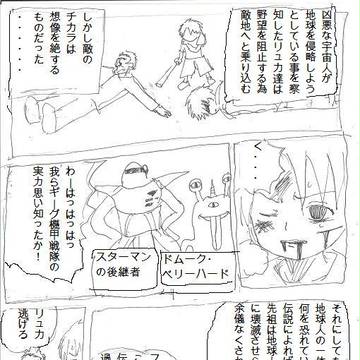 凶悪な宇宙人が
地球を侵略しよう
としている事を察
知したリュカ達は
野望を阻止する為
敵地へと乗り込む
しかし敵の
チカラは
想像を絶する
ものだった
・・・・・・
く・・・・
わーはっはっはっ
我らギーグ機甲戦隊の
実力思い知ったか！
ドムーク・
ベリーハード
スターマン
の後継者
それにしても
地球人の一
何を恐れてい
伝説によれば
先祖は地球
に壊滅さ
余儀なくされ
リュカ
逃げる